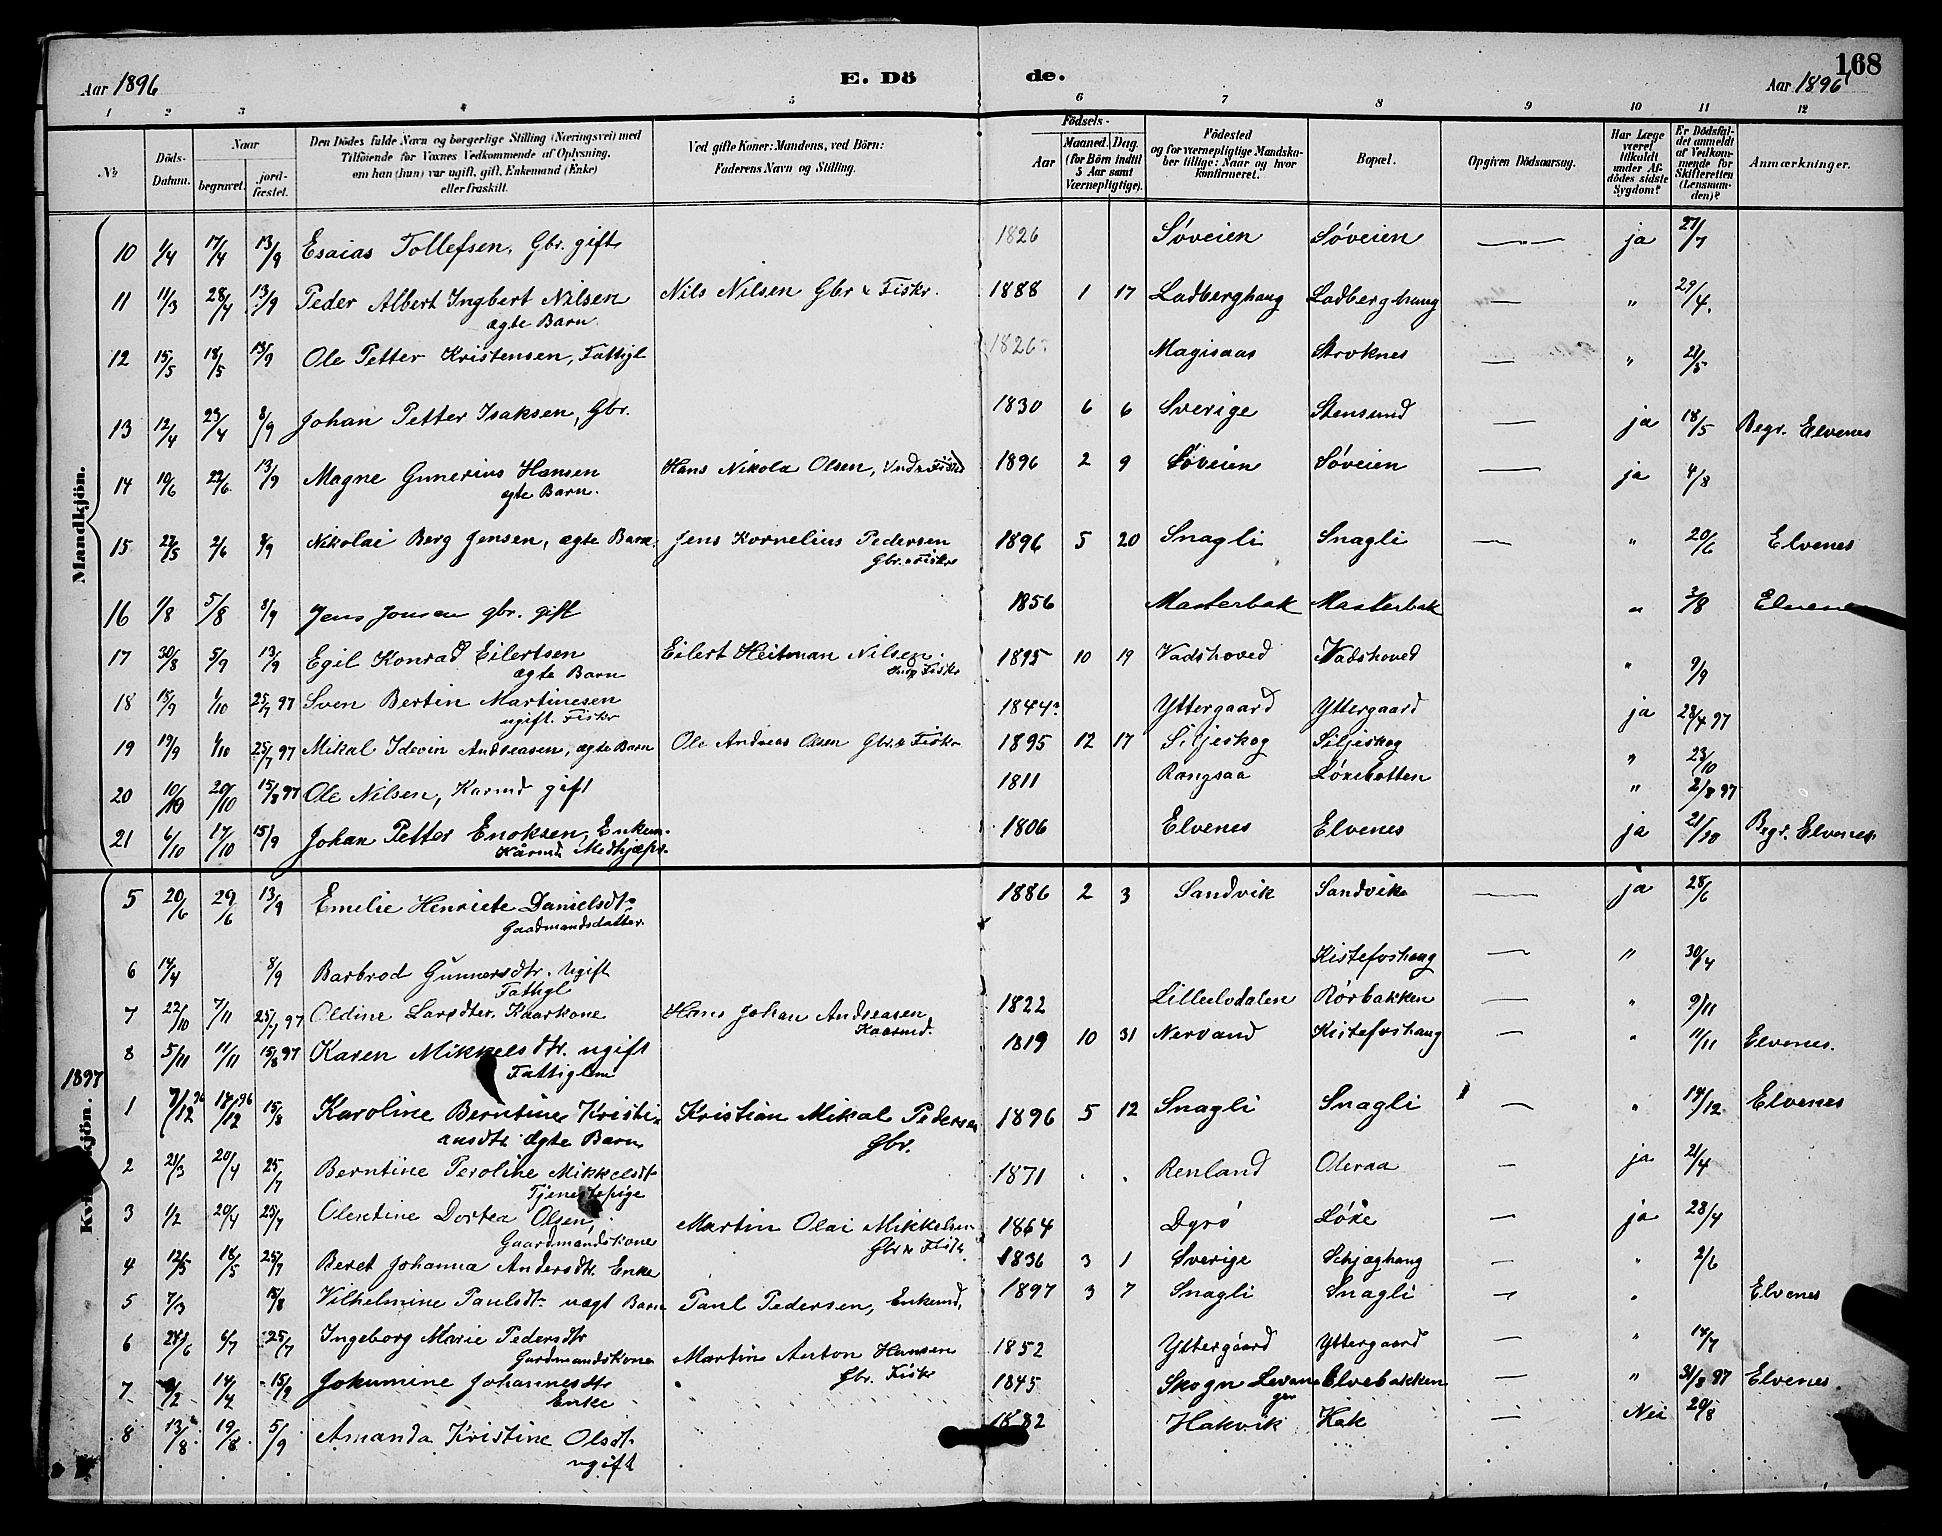 168
Aar 1896 E. Dö de. Aar 1896
1 2 3 4 5 6 7 8 9 10 11 12
№ Döds-Datum. Naar begravet. jord-fæstet. Den Dödes fulde Navn og borgerlige Stilling (Næringsvei) med Tilföiende for Voxnes Vedkommende af Oplysning, om han (hun) var ugift, gift, Enkemand (Enke) eller fraskilt. Ved gifte Koner: Mandens, ved Börn: Faderens Navn og Stilling. Födsels- Aar Maaned. Dag. (for Börn indtil 5 Aar samt Værnepligtige). Födested og for værnepligtige Mandskaber tillige: Naar og hvor konfirmeret. Bopæl. Opgiven Dödsaarsag. Har Læge været tilkaldt under Afdödes sidste Sygdom? Er Dödsfaldet anmeldt af Vedkommende for Skifteretten (Lensmanden)? Anmærkninger.
Mandkjön.
10 1/4 17/4 13/9 Esaias Tollefsen, Gbr. gift 1826 Söveien Söveien — ja 27/7
11 11/3 28/4 13/9 Peder Albert Ingbert Nilsen Nils Nilsen Gbr & Fiskr. 1888 1 17 Ladberghaug Ladberghaug — " 29/4.
ægte Barn.
12 15/5 18/5 13/9 Ole Petter Kristensen, Fattigl 1826 Magisaas Stroknes — " 22/5
13 12/4 29/4 8/9 Johan Petter Isaksen, Gbr. 1830 6 6 Sverige Stensund — ja 18/5 Begr. Elvenes
14 10/6 22/6 13/9 Magne Gunerius Hansen Hans Nikolai Olsen, 1896 2 9 Söveien Söveien — ja 4/8
ægte Barn.
15 22/5 2/6 8/9 Nikolai Berg Jensen, ægte Barn. Jens Kornelius Pedersen 1896 5 20 Snagli Snagli — " 20/6 Elvenes
Gbr. & Fiskr
16 1/8 5/8 8/9 Jens Jonsen gbr. gift 1856 Masterbak Masterbak " 3/8 Elvenes
17 30/8 5/9 13/9 Egil Konrad Eilertsen Eilert Heitman Nilsen. 1895 10 19 Vadshoved Vadshoved " 9/9
ægte Barn Fiskr
18 15/9 1/10 25/7 97 Sven Bertin Martinesen 1844 Yttergaard Yttergaard ja 28/4 97
ugift. Fiskr
19 19/9 1/10 25/7 97 Mikal Idevin Andreasen, ægte Barn Ole Andreas Olsen Gbr. & Fiskr 1895 12 17 Siljeskog Siljeskog " 23/10
20 10/10 20/10 15/8 97 Ole Nilsen, Kaarmd gift 1811 Rangsaa Löxebotten " 2/8 97
21 6/10 17/10 15/9 Johan Petter Enoksen, Enkem. 1806 Elvenes Elvenes ja 21/10 Begr. Elvenes.
Kårmd Medhjælpr.
Kvindkjön.
5 20/6 29/6 13/9 Emelie Henriete Danielsdtr 1886 2 3 Sandvik Sandvik — ja 28/6
Gaardmandsdatter.
6 14/4 8/9 Barbrod Gunnersdtr. Ugift Kistefoshaug — " 30/4
Fattigl
7 22/10 7/11 25/7 97 Oldine Larsdtter. Kaarkone Hans Johan Andreasen, 1822 Lilleelvdalen Rörbakken " 9/11
Kaarmd.
8 5/11 11/11 15/8 97 Karen Mikkelsdtr. ugift 1819 10 31 Nervand Kistefoshaug " 11/11 Elvenes.
Fattiglem
1897
1 7/12 96 17/12 96 15/8 Karoline Berntine Kristi- Kristian Mikal Pedersen 1896 5 12 Snagli Snagli — " 14/12 Elvenes
ansdtr ægte Barn Gbr.
2 21/3 20/4 25/7 Berntine Peroline Mikkelsdtr 1871 . . Renland Oleraa — ja 21/4
Tjenestepige
3 1/2 20/4 25/7 Olentine Dortea Olsen, Martin Olai Mikkelsen 1864 Dyrö Löxe — ja 28/4
Gaardmandskone Gbr & Fiskr
4 12/5 18/5 25/7 Beret Johanna Andersdtr. Enke 1836 3 1 Sverige Schjæghaug — " 2/6
5 7/3 15/8 Vilhelmine Paulsdtr uægt Barn Paul Pedersen, Enkemd. 1897 3 7 Snagli Snagli — " Elvenes
6 28/6 6/7 25/7 Ingeborg Marie Pedersdtr Martin Anton Hansen 1852 Yttergaard Yttergaard — " 14/7
Gardmandskone Gbr. Fiskr
7 9/2 14/4 15/9 Jokumine Johannesdtr 1845 Skogn Levanger Elvebakken — " 31/8 97 Elvenes.
Enke
8 13/8 19/8 5/9 Amanda Kristine Olsdtr 1882 Hakvik Hak — Nei 20/8
ugift